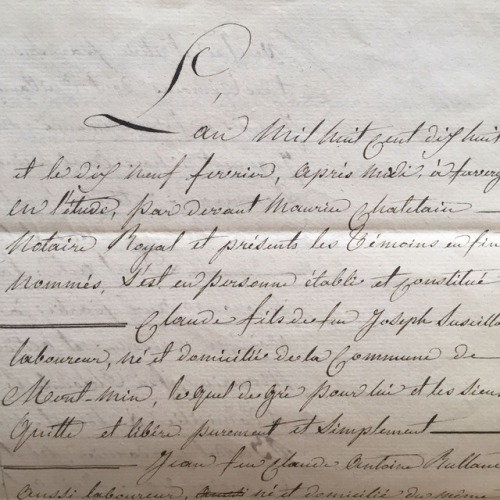 L'an mil huit cent dix huit
et le dix neuf fevrier, après midi, à faverg
en l'étude, par devant Maurice Chatelain
Notaire Royal et présents les témoins en fin
nommés, s'est en personne établi et constitué
Claude fils de feu Joseph
laboureur, né et domicilié de la Commune de
Mont-min, lequel de gré pour lui et les siens
quitte et libère purement et simplement
Jean feu Claude Antoine
aussi laboureur, né et domicilié du même